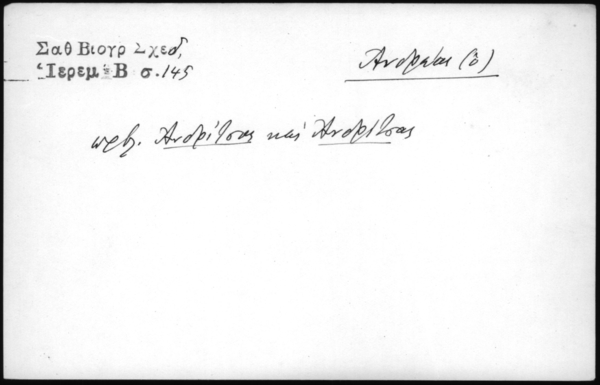 Σαθ Βιογρ Σχεδ,
Ἱερεμ. Β σ. 145
Ἀνδρέας (ὁ)
πρβλ. Ἀνδρίτσος καὶ Ἀνδρίτσας